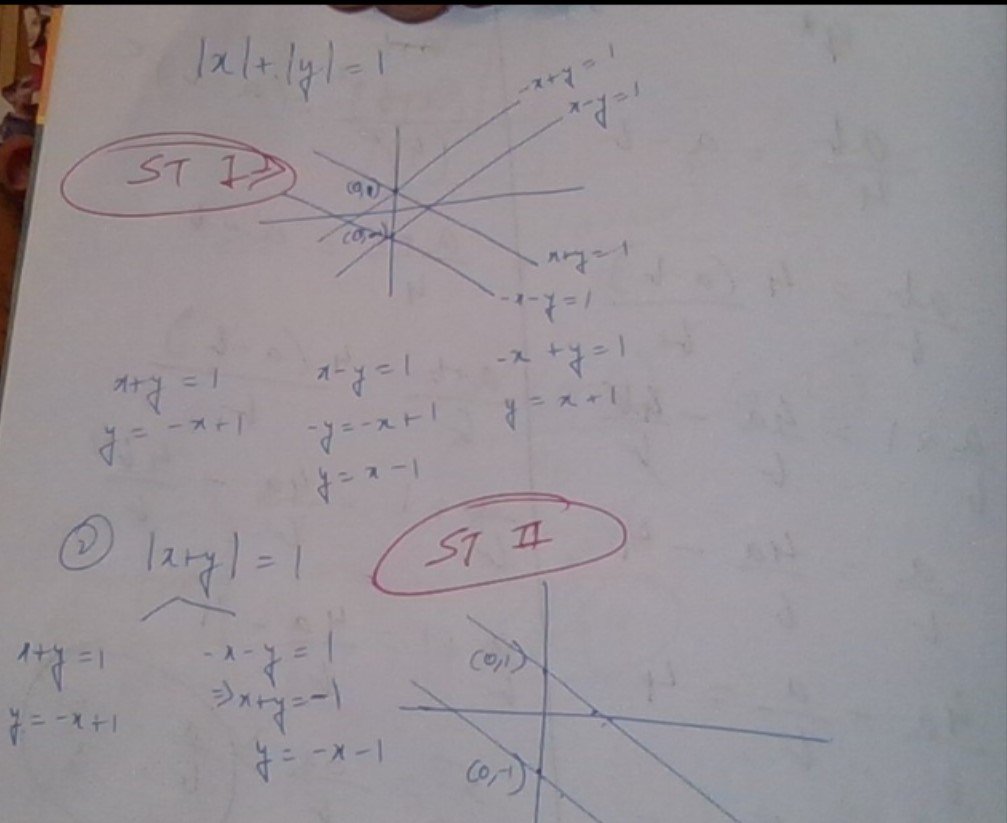 |x|+|y|=1
-x+y=1
x-y=1
ST I
x+y=1
-x-y=1
x+y=1 x-y=1 -x+y=1
y=-x+1 -y=-x+1 y=x+1
y=x-1
② |x+y|=1 ST II
x+y=1 -x-y=1 (0,1)
y=-x+1 ⇒x+y=-1
y=-x-1 (0,-1)